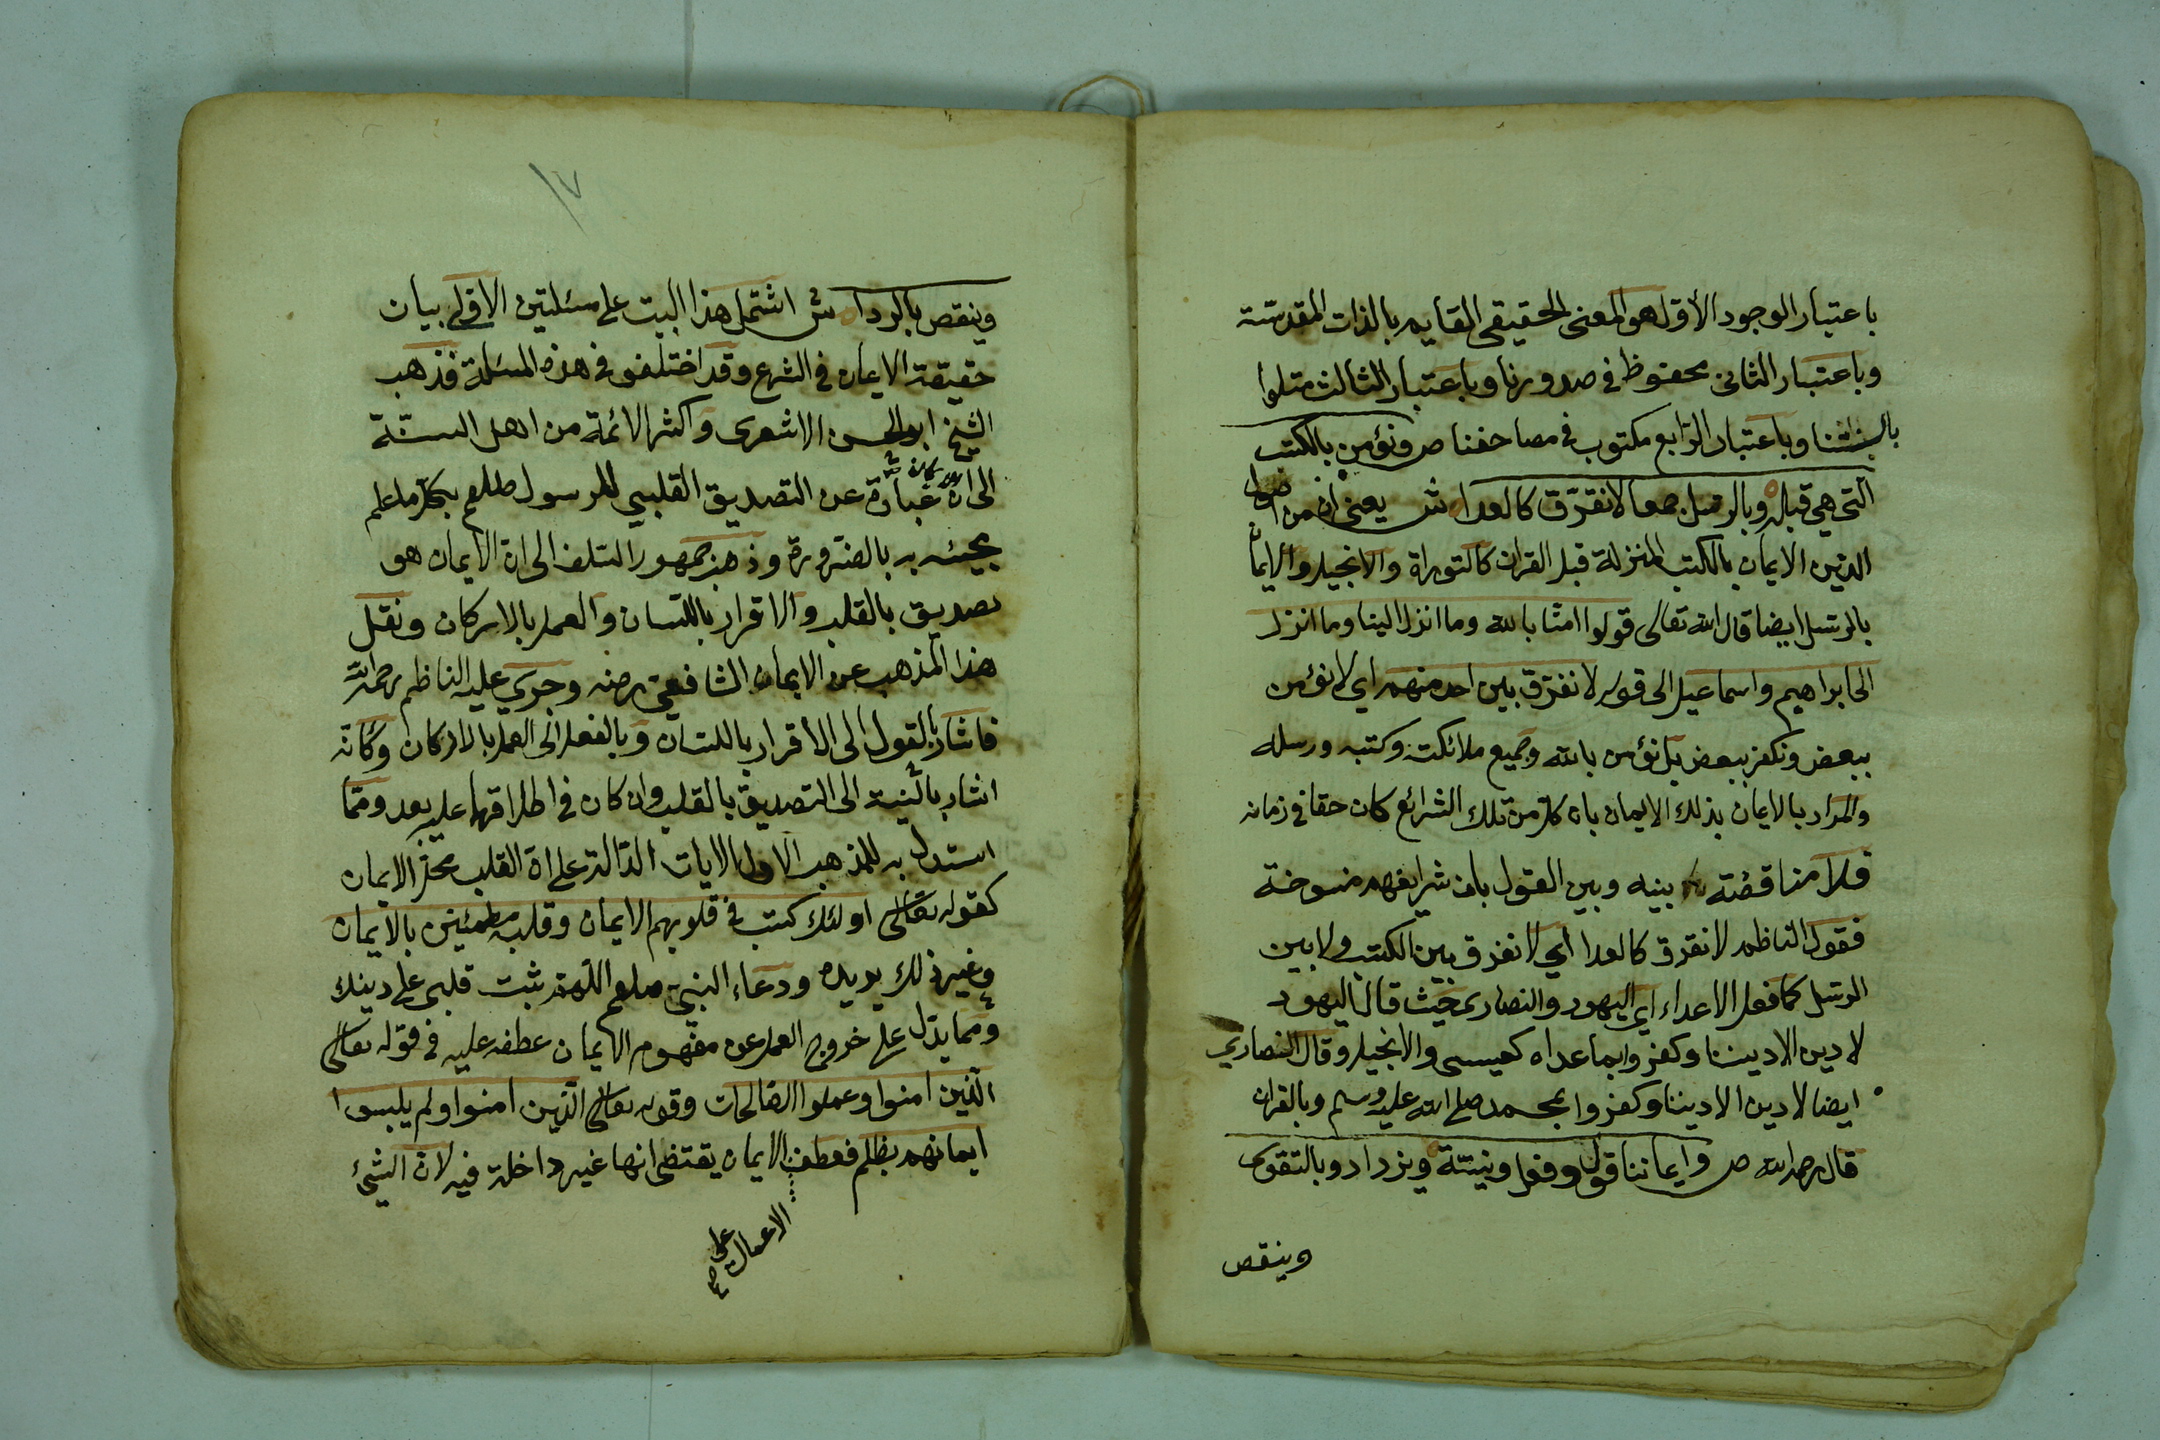 باعتبار الوجود الأول هو المعنى الحقيقي القايم بالذات المقدسة
وباعتبار الثاني محفوظ في صدورنا وباعتبار الثالث متلوا
بالسنتنا وباعتبار الرابع مكتوب في مصاحفنا ص ونؤمن بالكتب
التي هي قبله وبالرسل جمعا لا نفرق كالعدا ش يعني ان من اصول
الدين الايمان بالكتب المنزلة قبل القران كالتوراة والانجيل والايمان
بالرسل ايضا قال الله تعالى قولوا امنا بالله وما انزل الينا وما انزل
الى ابراهيم واسماعيل الى قوله لا نفرق بين احد منهم اي لا نؤمن
ببعض ونكفر ببعض بل نؤمن بالله وجميع ملائكته وكتبه ورسله
والمراد بالايمان بذلك الايمان بان كل من تلك الشرائع كان حقا في زمانه
فلا مناقضة بينه وبين القول بان شرايعهم منسوخة
فقول الناظم لا نفرق كالعدا اي لا نفرق بين الكتب ولا بين
الرسل كما فعل الاعداء اي اليهود والنصارى حيث قال اليهود
لا دين الا ديننا وكفروا بما عداه كعيسى والانجيل وقال النصاري
ايضا لا دين الا ديننا وكفروا بمحمد صلى الله عليه وسلم وبالقران
قال رحمه الله ص وايماننا قول وفعل ونية ويزداد وبالتقوى
وينقص
١٧
وينقص بالردا ش اشتمل هذا البيت على مسئلتين الاولى بيان
حقيقة الايمان في الشرع وقد اختلفوا في هذه المسئلة فذهب
الشيخ ابو الحسن الاشعري واكثر الائمة من اهل السنة
الى انه عبارة عن التصديق القلبي للرسول صلعم بكل ما علم
مجيئه به بالضرورة وذهب جمهور السلف الى ان الايمان هو
تصديق بالقلب والاقرار باللسان والعمل بالاركان ونقل
هذا المذهب عن الايمان الشافعي رضه وجري عليه الناظم رحمه الله
فاشار بالقول الى الأقرار باللسان وبالفعل الى العمل بالاركان وكانه
اشار بالنية الى التصديق بالقلب وان كان في اطلاقها عليه بعد ومما
استدل به للمذهب الاول الايات الدالة على ان القلب محل الايمان
كقوله تعالى اولئك كتب في قلوبهم الايمان وقلبه مطمئين بالايمان
وغير ذلك يويده ودعاء النبي صلعم اللهم ثبت قلبي على دينك
ومما يدل على خروج العمل عن مفهوم الايمان عطفه عليه في قوله تعالى
الذين امنوا وعملوا الصالحات وقوله تعالى الذين امنوا ولم يلبسوا
ايمانهم بظلم فعطف الايمان يقتضى انها غير داخلة فيه لان الشيئ
الاعمال على
صح